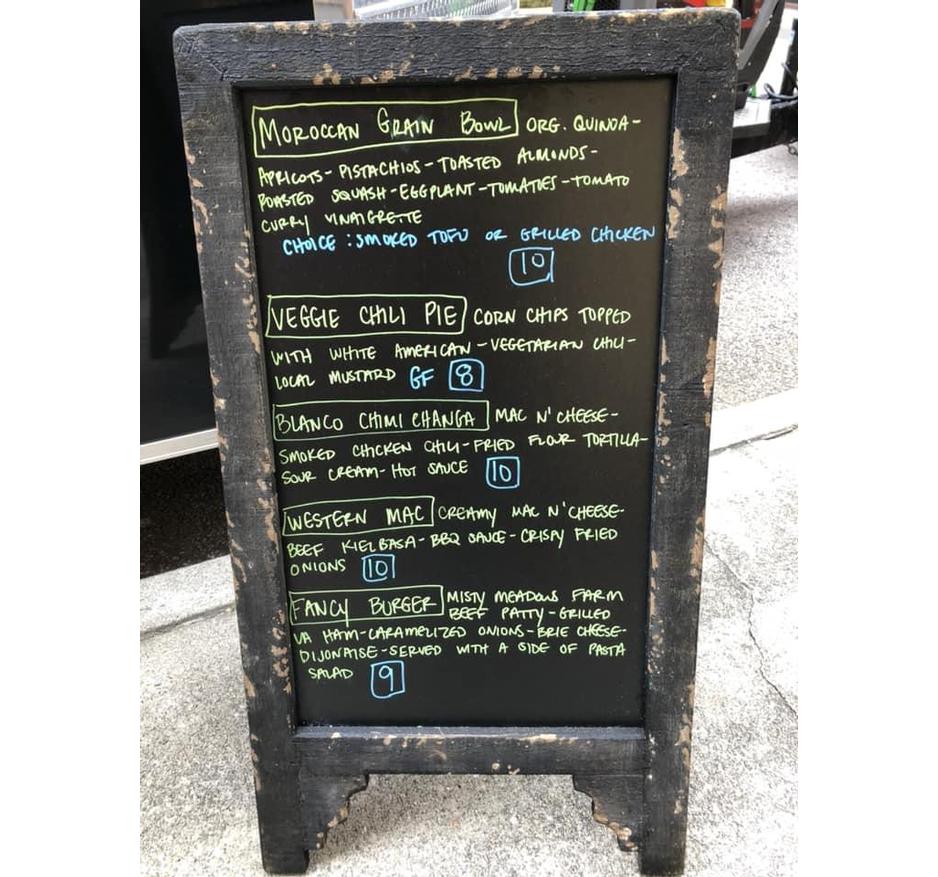 MOROCCAN GRAIN BOWL ORG. QUINOA-
APRICOTS-PISTACHIOS-TOASTED ALMONDS-
ROASTED SQUASH-EGGPLANT-TOMATOES-TOMATO
CURRY VINAIGRETTE
CHOICE: SMOKED TOFU OR GRILLED CHICKEN
10
VEGGIE CHILI PIE CORN CHIPS TOPPED
WITH WHITE AMERICAN-VEGETARIAN CHILI-
LOCAL MUSTARD GF 8
BLANCO CHIMI CHANGA MAC N' CHEESE-
SMOKED CHICKEN CHILI-FRIED FLOUR TORTILLA-
SOUR CREAM-HOT SAUCE 10
WESTERN MAC CREAMY MAC N' CHEESE-
BEEF KIELBASA-BBQ SAUCE-CRISPY FRIED
ONIONS 10
FANCY BURGER MISTY MEADOWS FARM
BEEF PATTY-GRILLED
VA HAM-CARAMELIZED ONIONS-BRIE CHEESE-
DIJONAISE-SERVED WITH A SIDE OF PASTA
SALAD 9